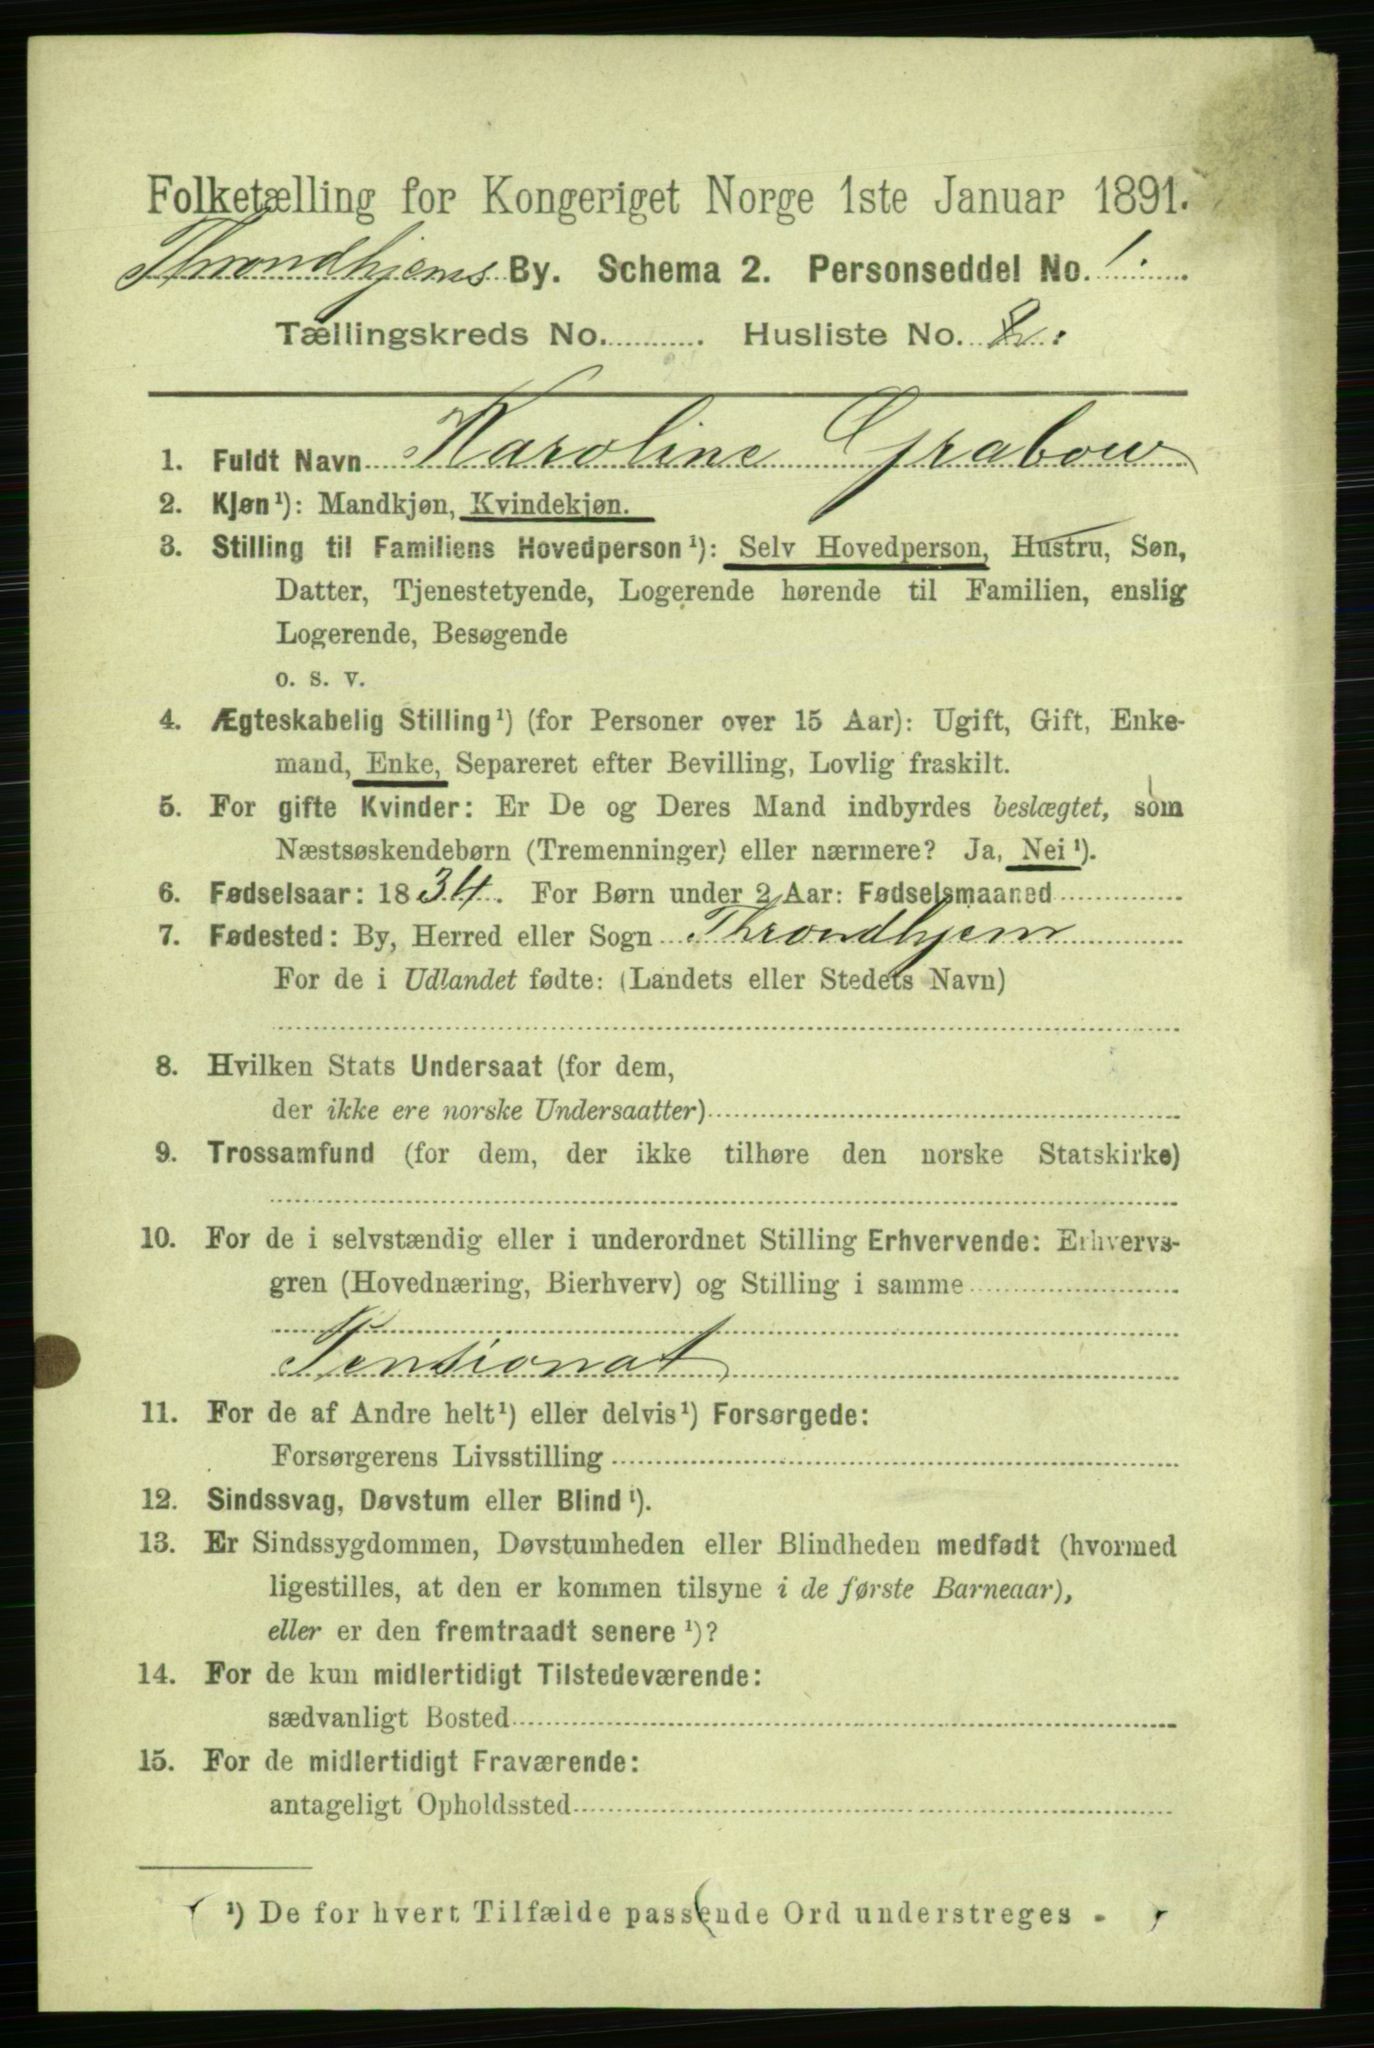 Folketælling for Kongeriget Norge 1ste Januar 1891.
Throndhjems By. Schema 2. Personseddel No. 1.
Tællingskreds No. Husliste No. 2.
1. Fuldt Navn Karoline Grabow
2. Kjøn¹): Mandkjøn, Kvindekjøn.
3. Stilling til Familiens Hovedperson¹): Selv Hovedperson, Hustru, Søn,
Datter, Tjenestetyende, Logerende hørende til Familien, enslig
Logerende, Besøgende
o. s. v.
4. Ægteskabelig Stilling¹) (for Personer over 15 Aar): Ugift, Gift, Enke-
mand, Enke, Separeret efter Bevilling, Lovlig fraskilt.
5. For gifte Kvinder: Er De og Deres Mand indbyrdes beslægtet, som
Næstsøskendebørn (Tremenninger) eller nærmere? Ja, Nei¹).
6. Fødselsaar: 1834. For Børn under 2 Aar: Fødselsmaaned
7. Fødested: By, Herred eller Sogn Throndhjem
For de i Udlandet fødte: (Landets eller Stedets Navn)
8. Hvilken Stats Undersaat (for dem,
der ikke ere norske Undersaatter)
9. Trossamfund (for dem, der ikke tilhøre den norske Statskirke)
10. For de i selvstændig eller i underordnet Stilling Erhvervende: Erhvervs-
gren (Hovednæring, Bierhverv) og Stilling i samme
Pensionat
11. For de af Andre helt¹) eller delvis¹) Forsørgede:
Forsørgerens Livsstilling
12. Sindssvag, Døvstum eller Blind¹).
13. Er Sindssygdommen, Døvstumheden eller Blindheden medfødt (hvormed
ligestilles, at den er kommen tilsyne i de første Barneaar),
eller er den fremtraadt senere¹)?
14. For de kun midlertidigt Tilstedeværende:
sædvanligt Bosted
15. For de midlertidigt Fraværende:
antageligt Opholdssted
¹) De for hvert Tilfælde passende Ord understreges.